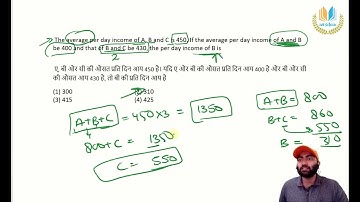 The average per day income of A, B and C is 450. If the average per day income of A and B
be 400 and that of B and C be 430, the per day income of B is
ए, बी और सी की औसत प्रति दिन आय 450 है। यदि ए और बी की औसत प्रति दिन आय 400 है और बी और सी
की औसत आय 430 है, तो बी की प्रति दिन आय है
(1) 300
310
(3) 415
(4) 425
A+B+C = 450×3 = 1350
800+C = 1350
C = 550
A+B = 800
B+C = 860
550
B = 310